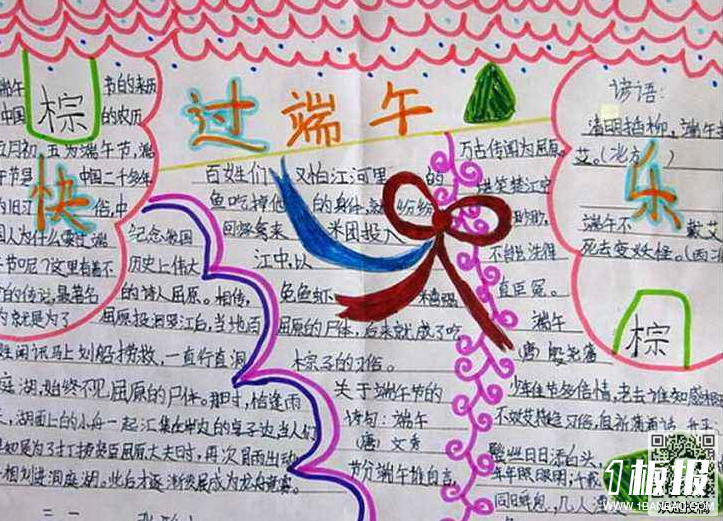 过端午
快
乐
棕
端午节的来历
中国 的农历
五月初,五为端午节,端
午节是 中国二千多年
的旧习俗,中
国人为什么要过端
午节呢?这里有着不
的传说,最著名
就是为了
纪念爱国
历史上伟大
的诗人屈原。相传,
屈原投汨罗江台,当地百
姓闻讯马上划船捞救,一直行直洞
庭湖,始终不见屈原的尸体。那时,恰逢雨
天,湖面上的小舟一起汇集在岸边的亭子边,当人们
知是为了打捞贤臣屈原大夫时,再次冒雨出动
相划进洞庭湖。此后才逐渐发展成为龙舟竞赛。
百姓们 又怕江河里 的
鱼吃掉他 的身体,就 纷纷
回家拿来 米团投入
江中,以
免鱼虾 糟蹋
屈原的尸体,后来就成了吃
棕子的习俗。
关于端午节的
诗句:端午
(唐)文秀
节分端午谁自言,
万古传闻为屈原。
堪笑楚江空
不能洗得
直臣冤。
端午
(唐)殷尧藩
少年佳节多倍情,老去谁知感慨
不效艾符趋习俗,但祈蒲酒话升平
鬓丝日日添白头,
年年照眼明;千载
同日醉,几人
谚语:
清明插柳,端午插
艾。(北方)
端午不 戴艾
死去变妖怪。(西
棕
1板报
WWW.1BANBAO.COM
欢迎投稿